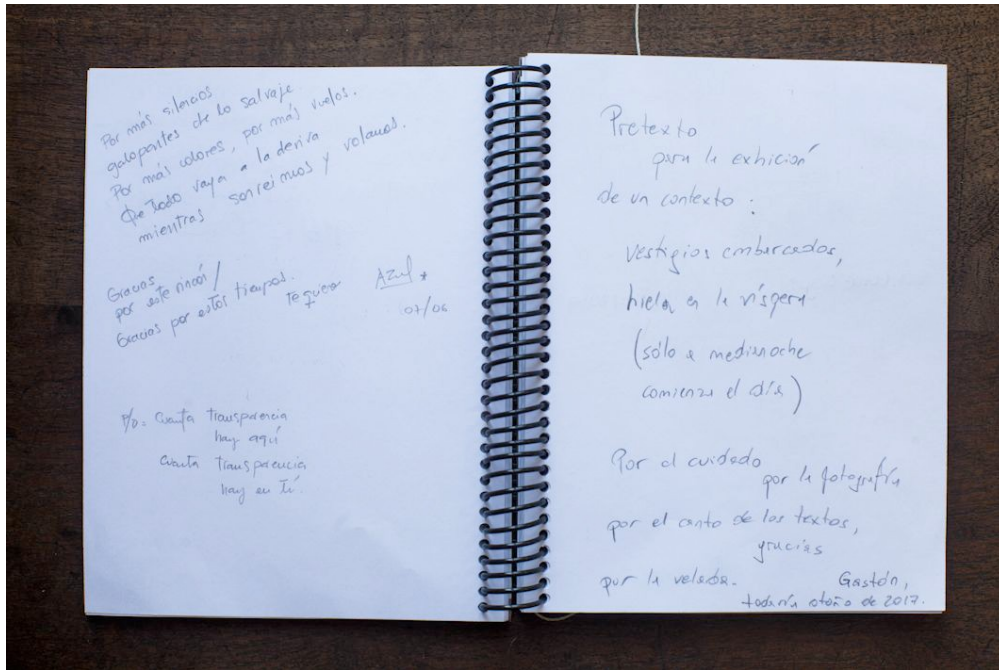 Por más silencios
galopantes de lo salvaje.
Por más colores, por más vuelos.
Que todo vaya a la deriva
mientras sonreimos y volamos.
Gracias
por este rincón/
Gracias por estos tiempos.
Te quiero
Azul *
07/06
P/D = Cuanta transparencia
hay aquí
Cuanta transparencia
hay en tí.
Pretexto
para la exhición
de un contexto :
vestigios embarcados,
hiela en la víspera
(sólo a medianoche
comienza el día)
Por el cuidado
por la fotografía
por el canto de los textos,
gracias
por la velada.
Gastón,
todavía otoño de 2017.